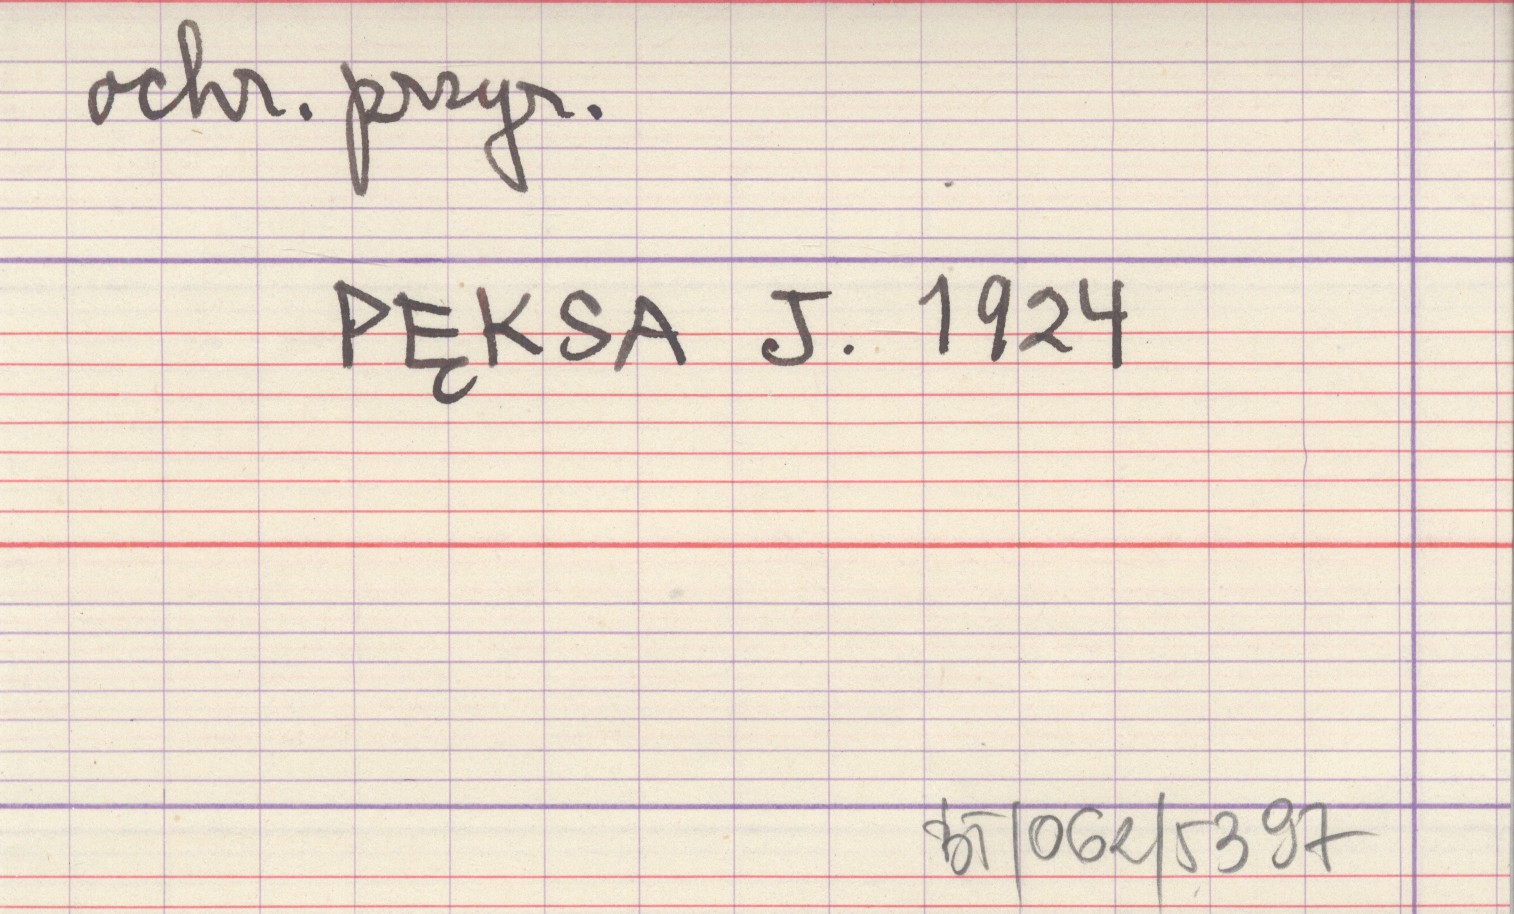 ochr. przyr.
PĘKSA J. 1924
BT/062/5397